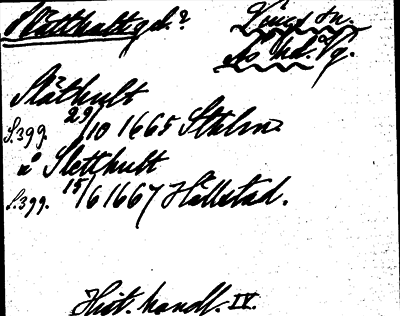 Slätthult gd.?
Långs sn.
Ås hd. Vg.
Slåthult
S.399. 29/10 1665 Sthlm
å Sletthult
S.399. 15/6 1667 Hallstad.
Hist. handl. IV.